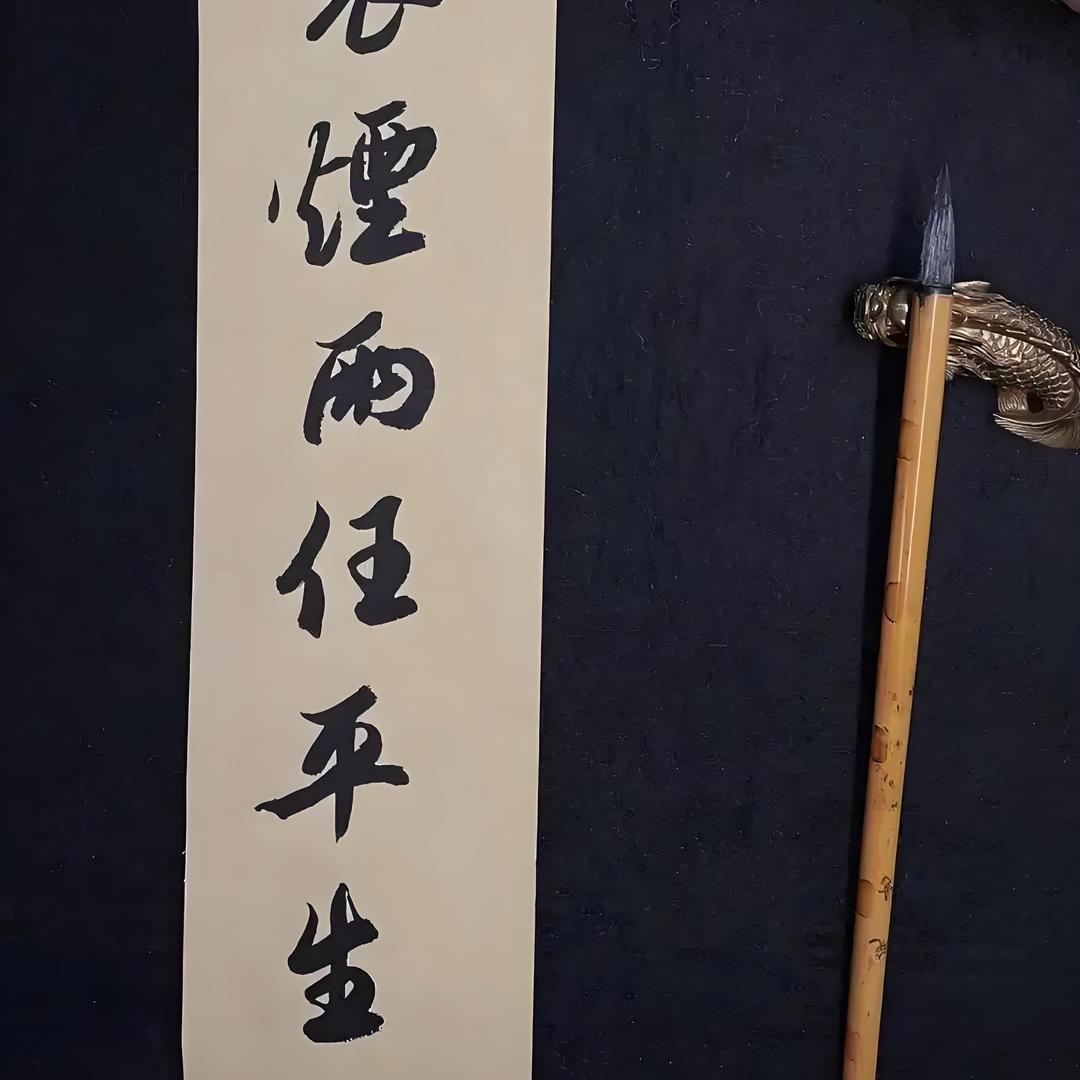 煙雨任平生